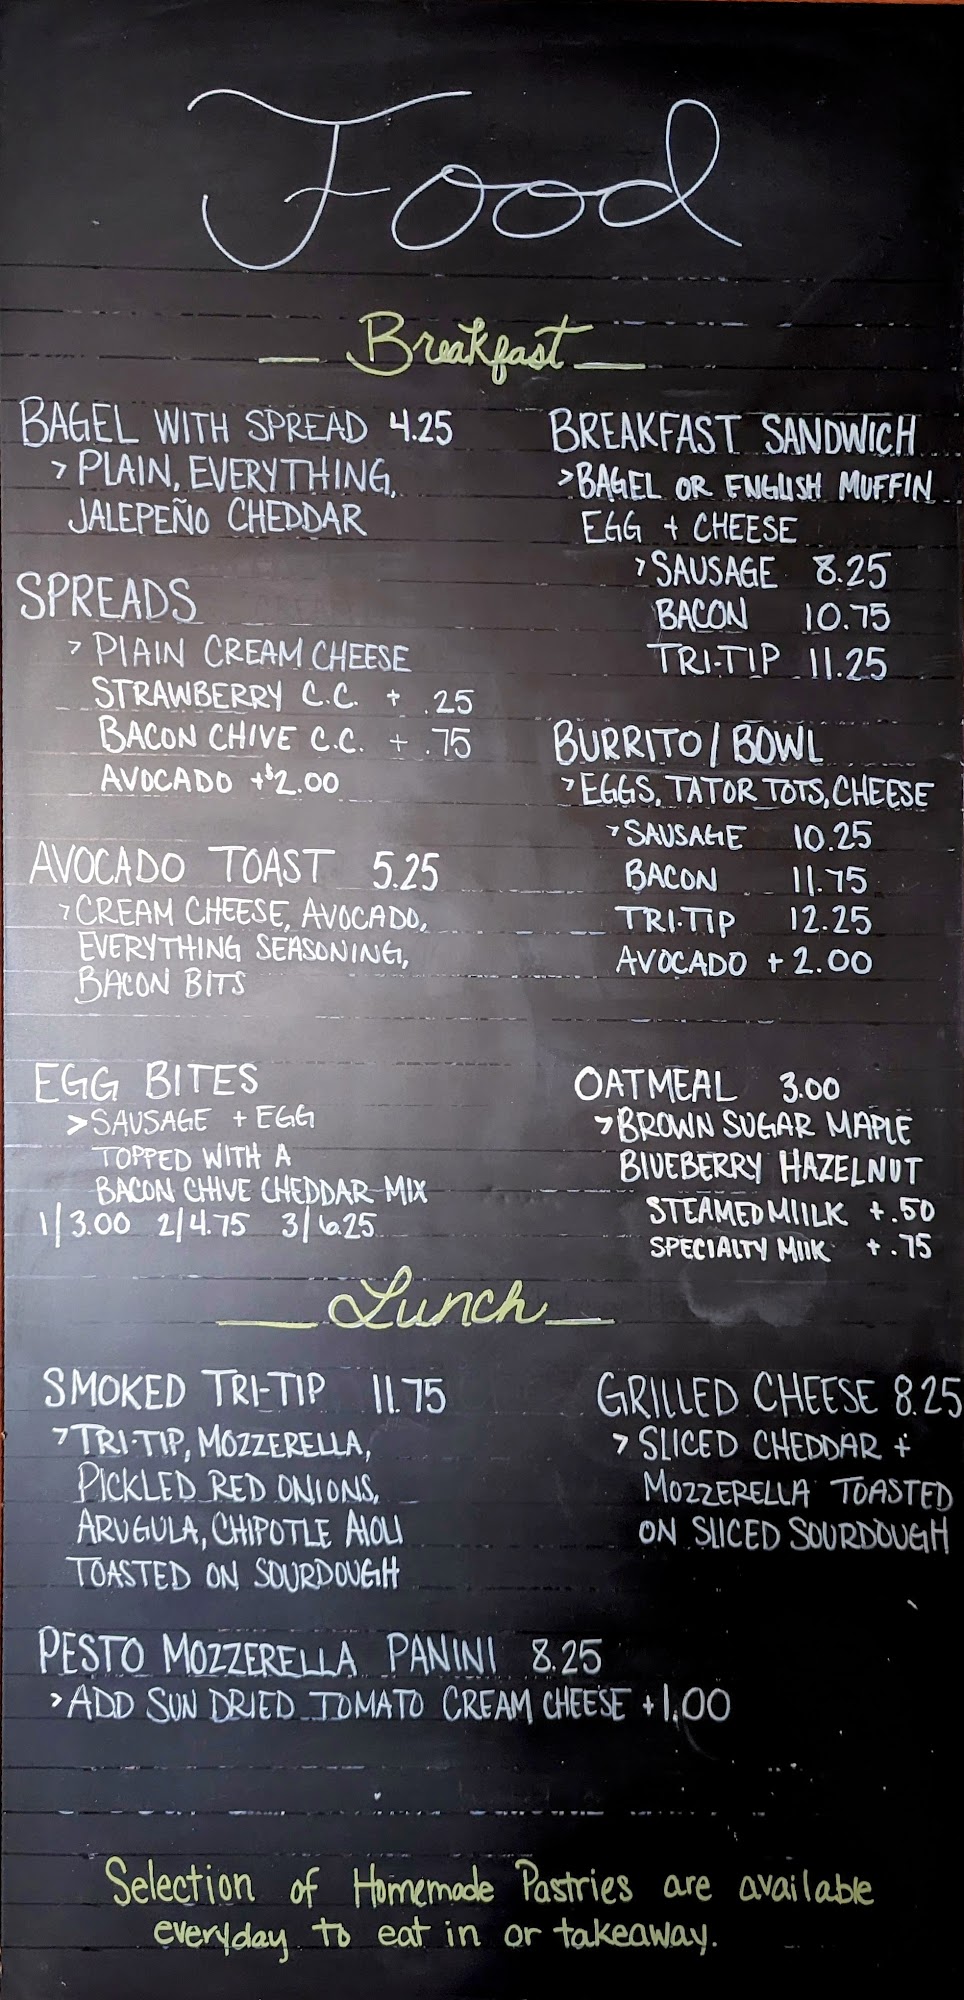 Food
Breakfast
BAGEL WITH SPREAD 4.25
> PLAIN, EVERYTHING,
JALEPEÑO CHEDDAR
SPREADS
> PLAIN CREAM CHEESE
STRAWBERRY C.C. + .25
BACON CHIVE C.C. + .75
AVOCADO +$2.00
AVOCADO TOAST 5.25
> CREAM CHEESE, AVOCADO,
EVERYTHING SEASONING,
BACON BITS
EGG BITES
> SAUSAGE + EGG
TOPPED WITH A
BACON CHIVE CHEDDAR MIX
1/3.00 2/4.75 3/6.25
BREAKFAST SANDWICH
> BAGEL OR ENGLISH MUFFIN
EGG + CHEESE
> SAUSAGE 8.25
BACON 10.75
TRI-TIP 11.25
BURRITO/BOWL
> EGGS, TATOR TOTS, CHEESE
> SAUSAGE 10.25
BACON 11.75
TRI-TIP 12.25
AVOCADO + 2.00
OATMEAL 3.00
> BROWN SUGAR MAPLE
BLUEBERRY HAZELNUT
STEAMED MIILK +.50
SPECIALTY MILK +.75
Lunch
SMOKED TRI-TIP 11.75
> TRI-TIP, MOZZERELLA,
PICKLED RED ONIONS,
ARUGULA, CHIPOTLE AIOLI
TOASTED ON SOURDOUGH
GRILLED CHEESE 8.25
> SLICED CHEDDAR +
MOZZERELLA TOASTED
ON SLICED SOURDOUGH
PESTO MOZZERELLA PANINI 8.25
> ADD SUN DRIED TOMATO CREAM CHEESE +1.00
Selection of Homemade Pastries are available
everyday to eat in or takeaway.